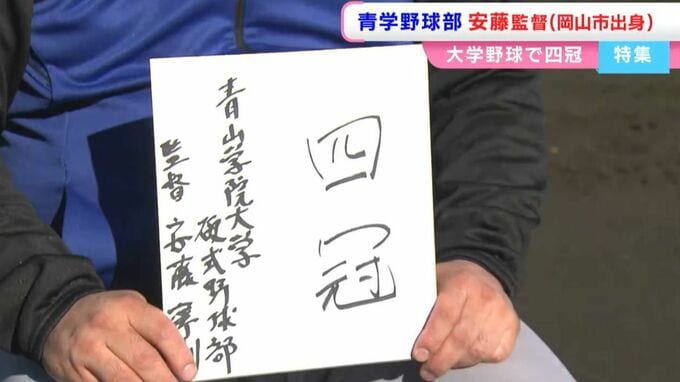 青学野球部 安藤監督(岡山市出身)
大学野球で四冠
特集
四冠
青山学院大学
硬式野球部
監督 安藤寧則